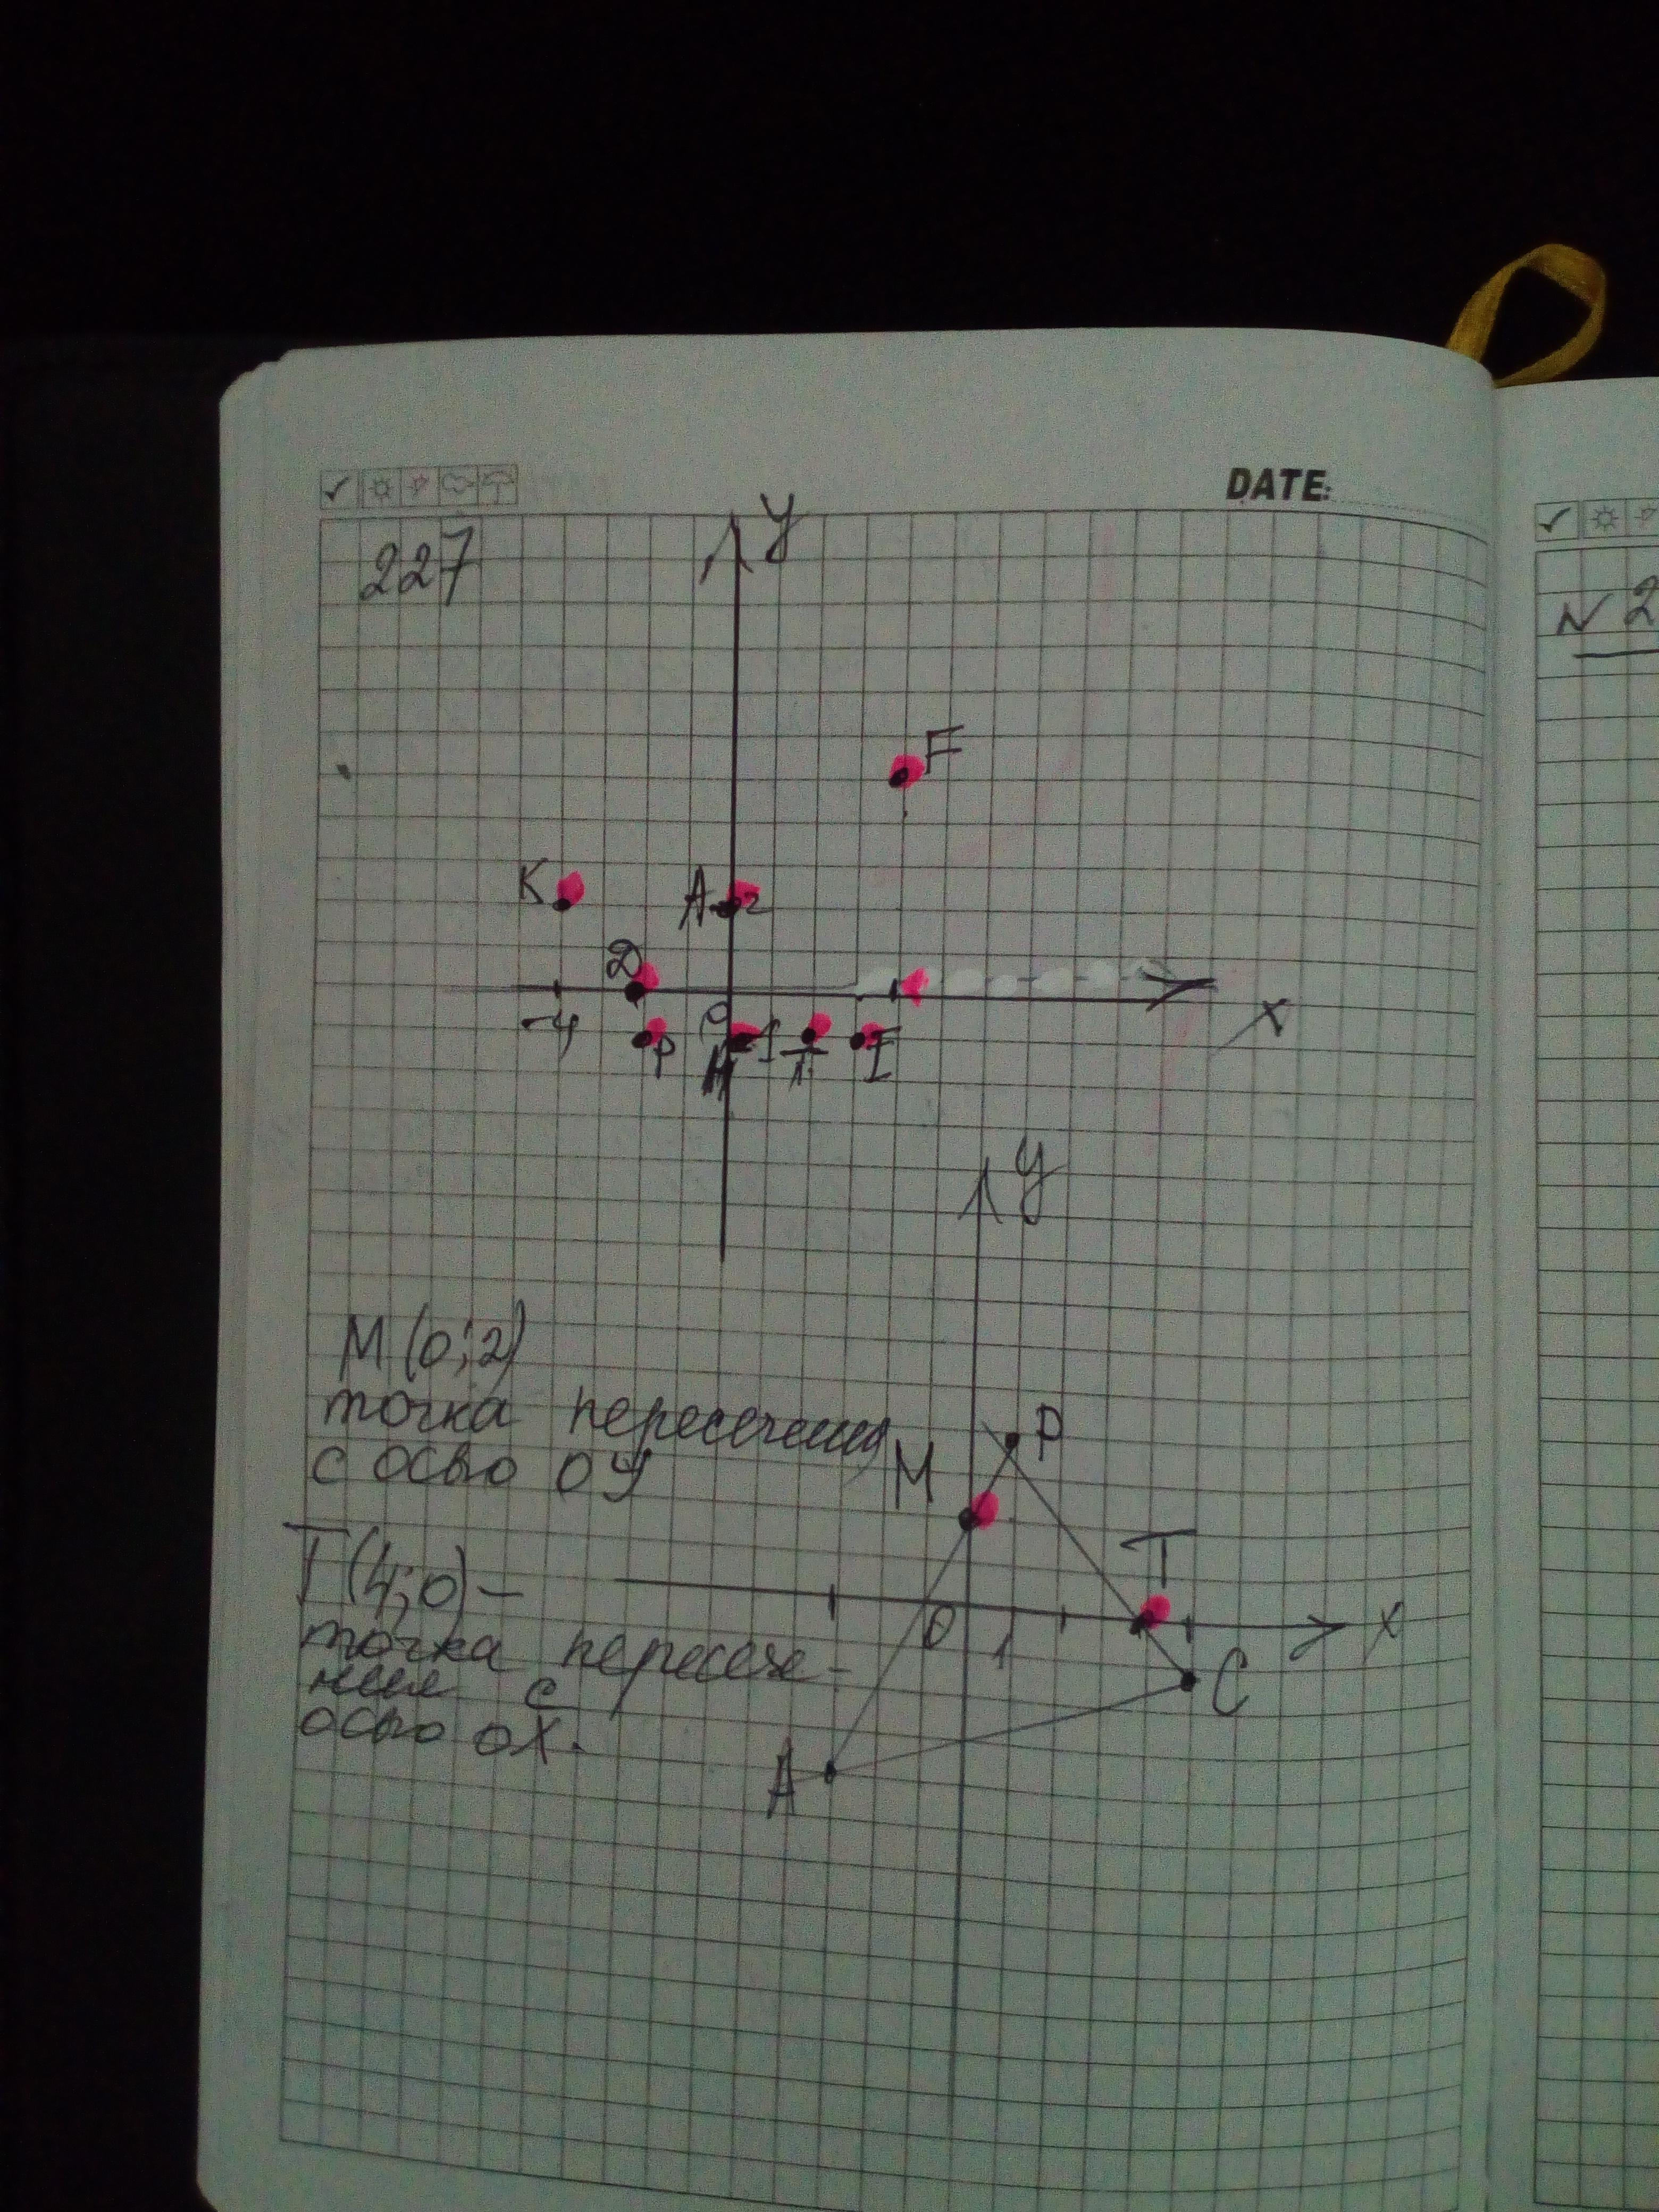 DATE:
227
y
F
K
A 2
D
-4
0
P
1
E
x
y
M (0; 2)
точка пересечения
с осью ОУ
M
P
T (4; 0) -
T
0
1
x
точка пересече-
ния с
осью ОХ.
C
A
N 2